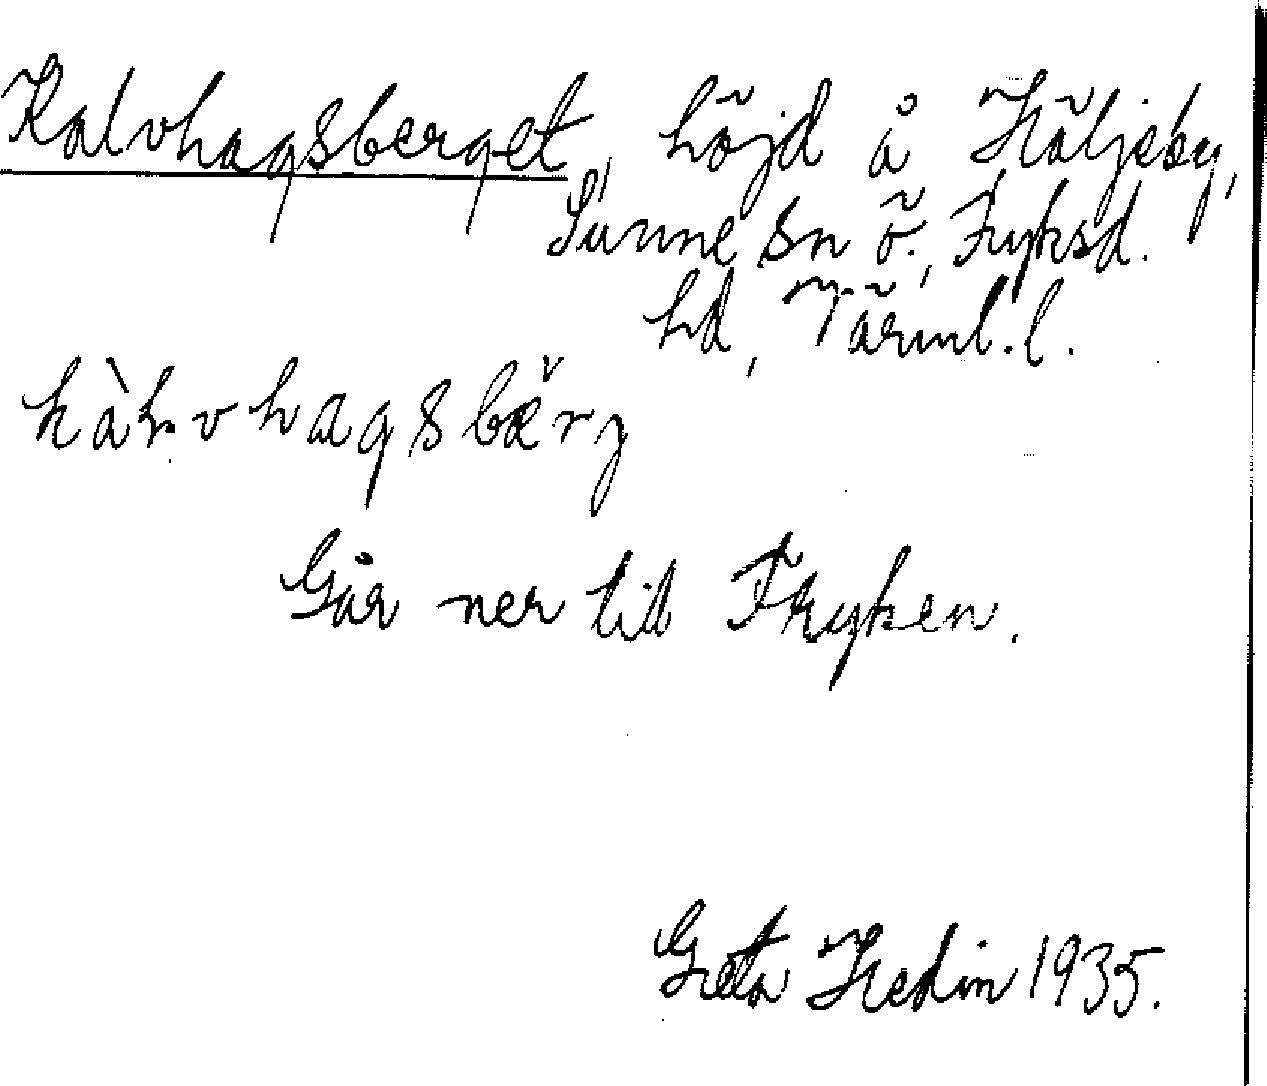 Kalvhagsberget, höjd å Häljeby,
Sunne sn ö., Fryksd.
hd, Värml.l.
kàƚvhagsbærj
Går ner till Fryken.
Greta Hedin 1935.